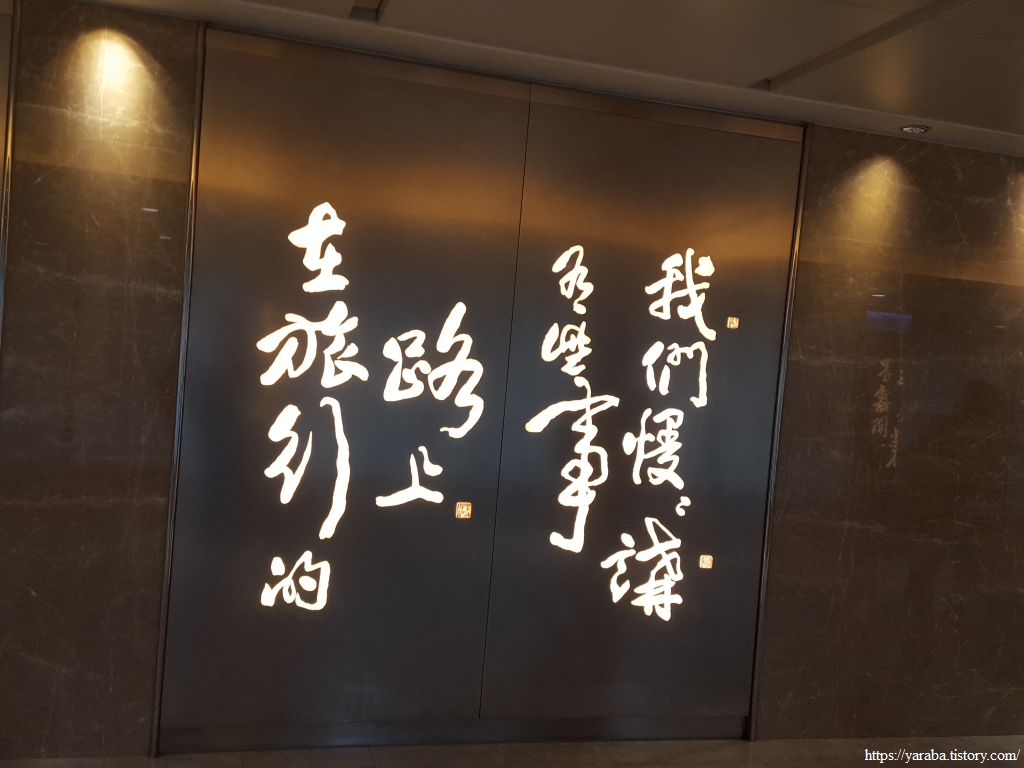 在旅行的
路上
有些事
我們慢々講
https://yaraba.tistory.com/